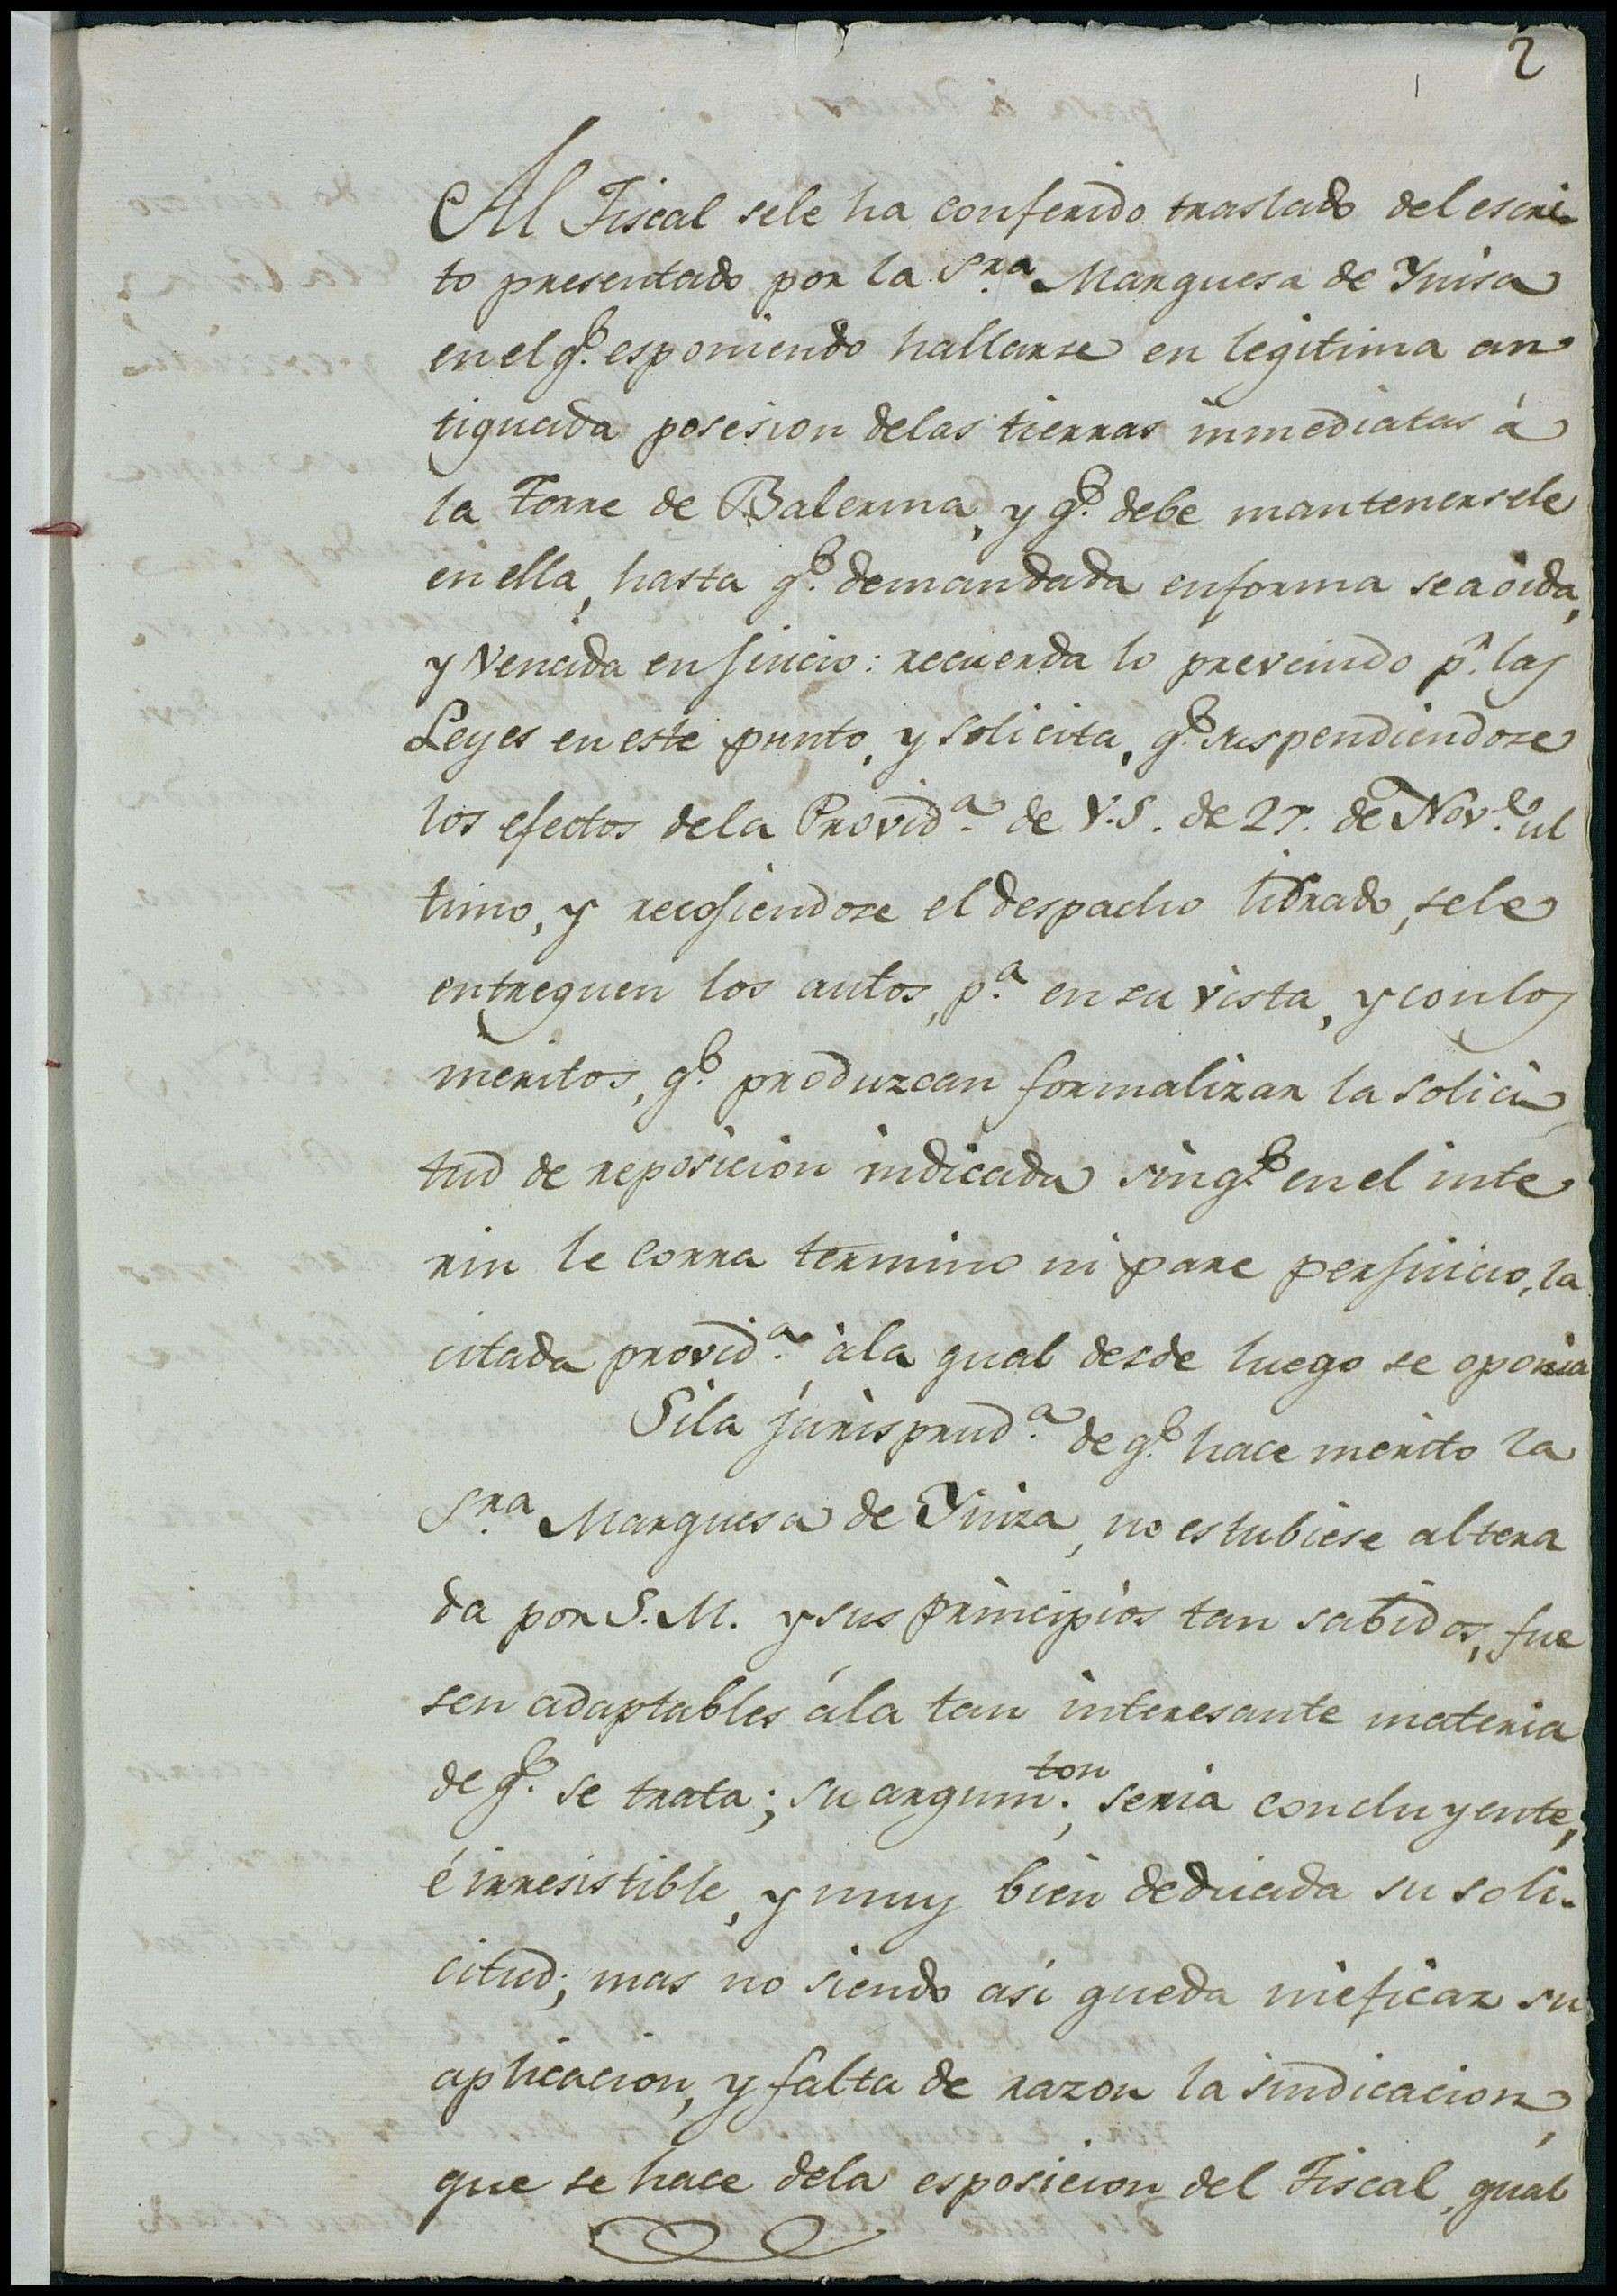 2
Al Fiscal sele ha conferido traslado del escri-
to presentado por la Sra. Marquesa de Ynisa
en el q.e esponiendo hallarse en legitima an
tiguada posesion delas tierras inmediatas á
la Torre de Balerma, y q.e debe mantenersele
en ella, hasta q.e demandada enforma sea oida,
y Vencida en Juicio: recuerda lo prevenido p.r las
Leyes en este punto, y solicita, q.e suspendiendose
los efectos dela Provid.a de V.S. de 27. de Nov.e ul
timo, y recojiendose el despacho librado, sele
entreguen los autos, p.a en su vista, y con los
meritos, q.e produzcan formalizar la solici
tud de reposicion indicada sin q.e en el inte
rin le corra termino ni pare perjuicio, la
citada provid.a àla qual desde luego se oponia
Si la jurisprud.a de q.e hace merito la
Sra. Marquesa de Yniza, no estubiese altera
da por S.M. y sus principios tan sabidos, fue
sen adaptables ála tan interesante materia
de q.e se trata; su argum.ton, seria concluyente,
é irresistible, y muy bien deducida su soli-
citud; mas no siendo asi queda ineficaz su
aplicacion, y falta de razon la sindicacion,
que se hace dela esposicion del Fiscal, qual